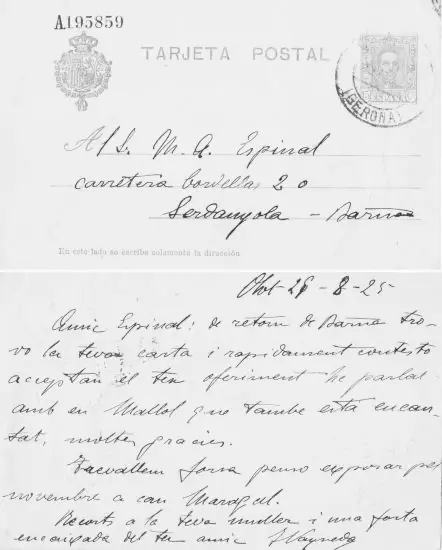 A.195859
TARJETA POSTAL
ESPAÑA
(GERONA)
Al Sr. M. A. Espinal
carretera Cordellas 20
Serdanyola - Barna
En este lado se escribe solamente la dirección
Olot 26 - 8 - 25
Amic Espinal: de retorn de Barna tro-
vo la teva carta i rapidament contesto
acceptan el teu oferiment he parlat
amb en Mallol que tambe está encan-
tat, moltes gracies.
Trevallem forsa penso exposar pel
novembre a can Maragal.
Recorts a la teva muller i una forta
encaixada del teu amic